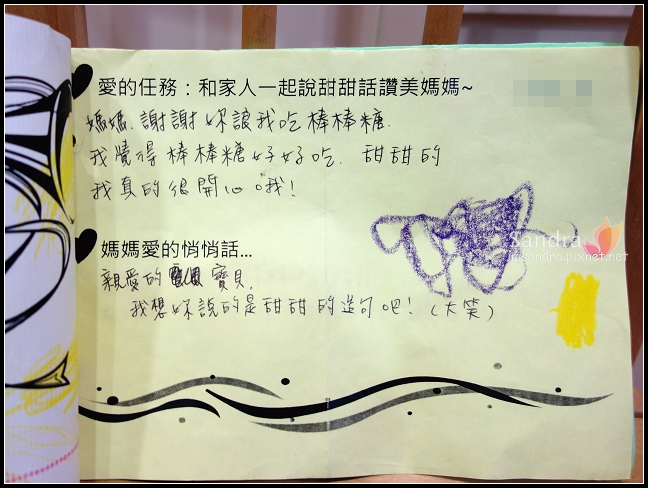 愛的任務：和家人一起說甜甜話讚美媽媽~
媽媽.謝謝妳讓我吃棒棒糖.
我覺得棒棒糖好好吃.甜甜的
我真的很開心哦！
媽媽愛的悄悄話...
親愛的寶貝,
我想妳說的是甜甜的造句吧！(大笑)
Sandra
resandra.pixnet.net